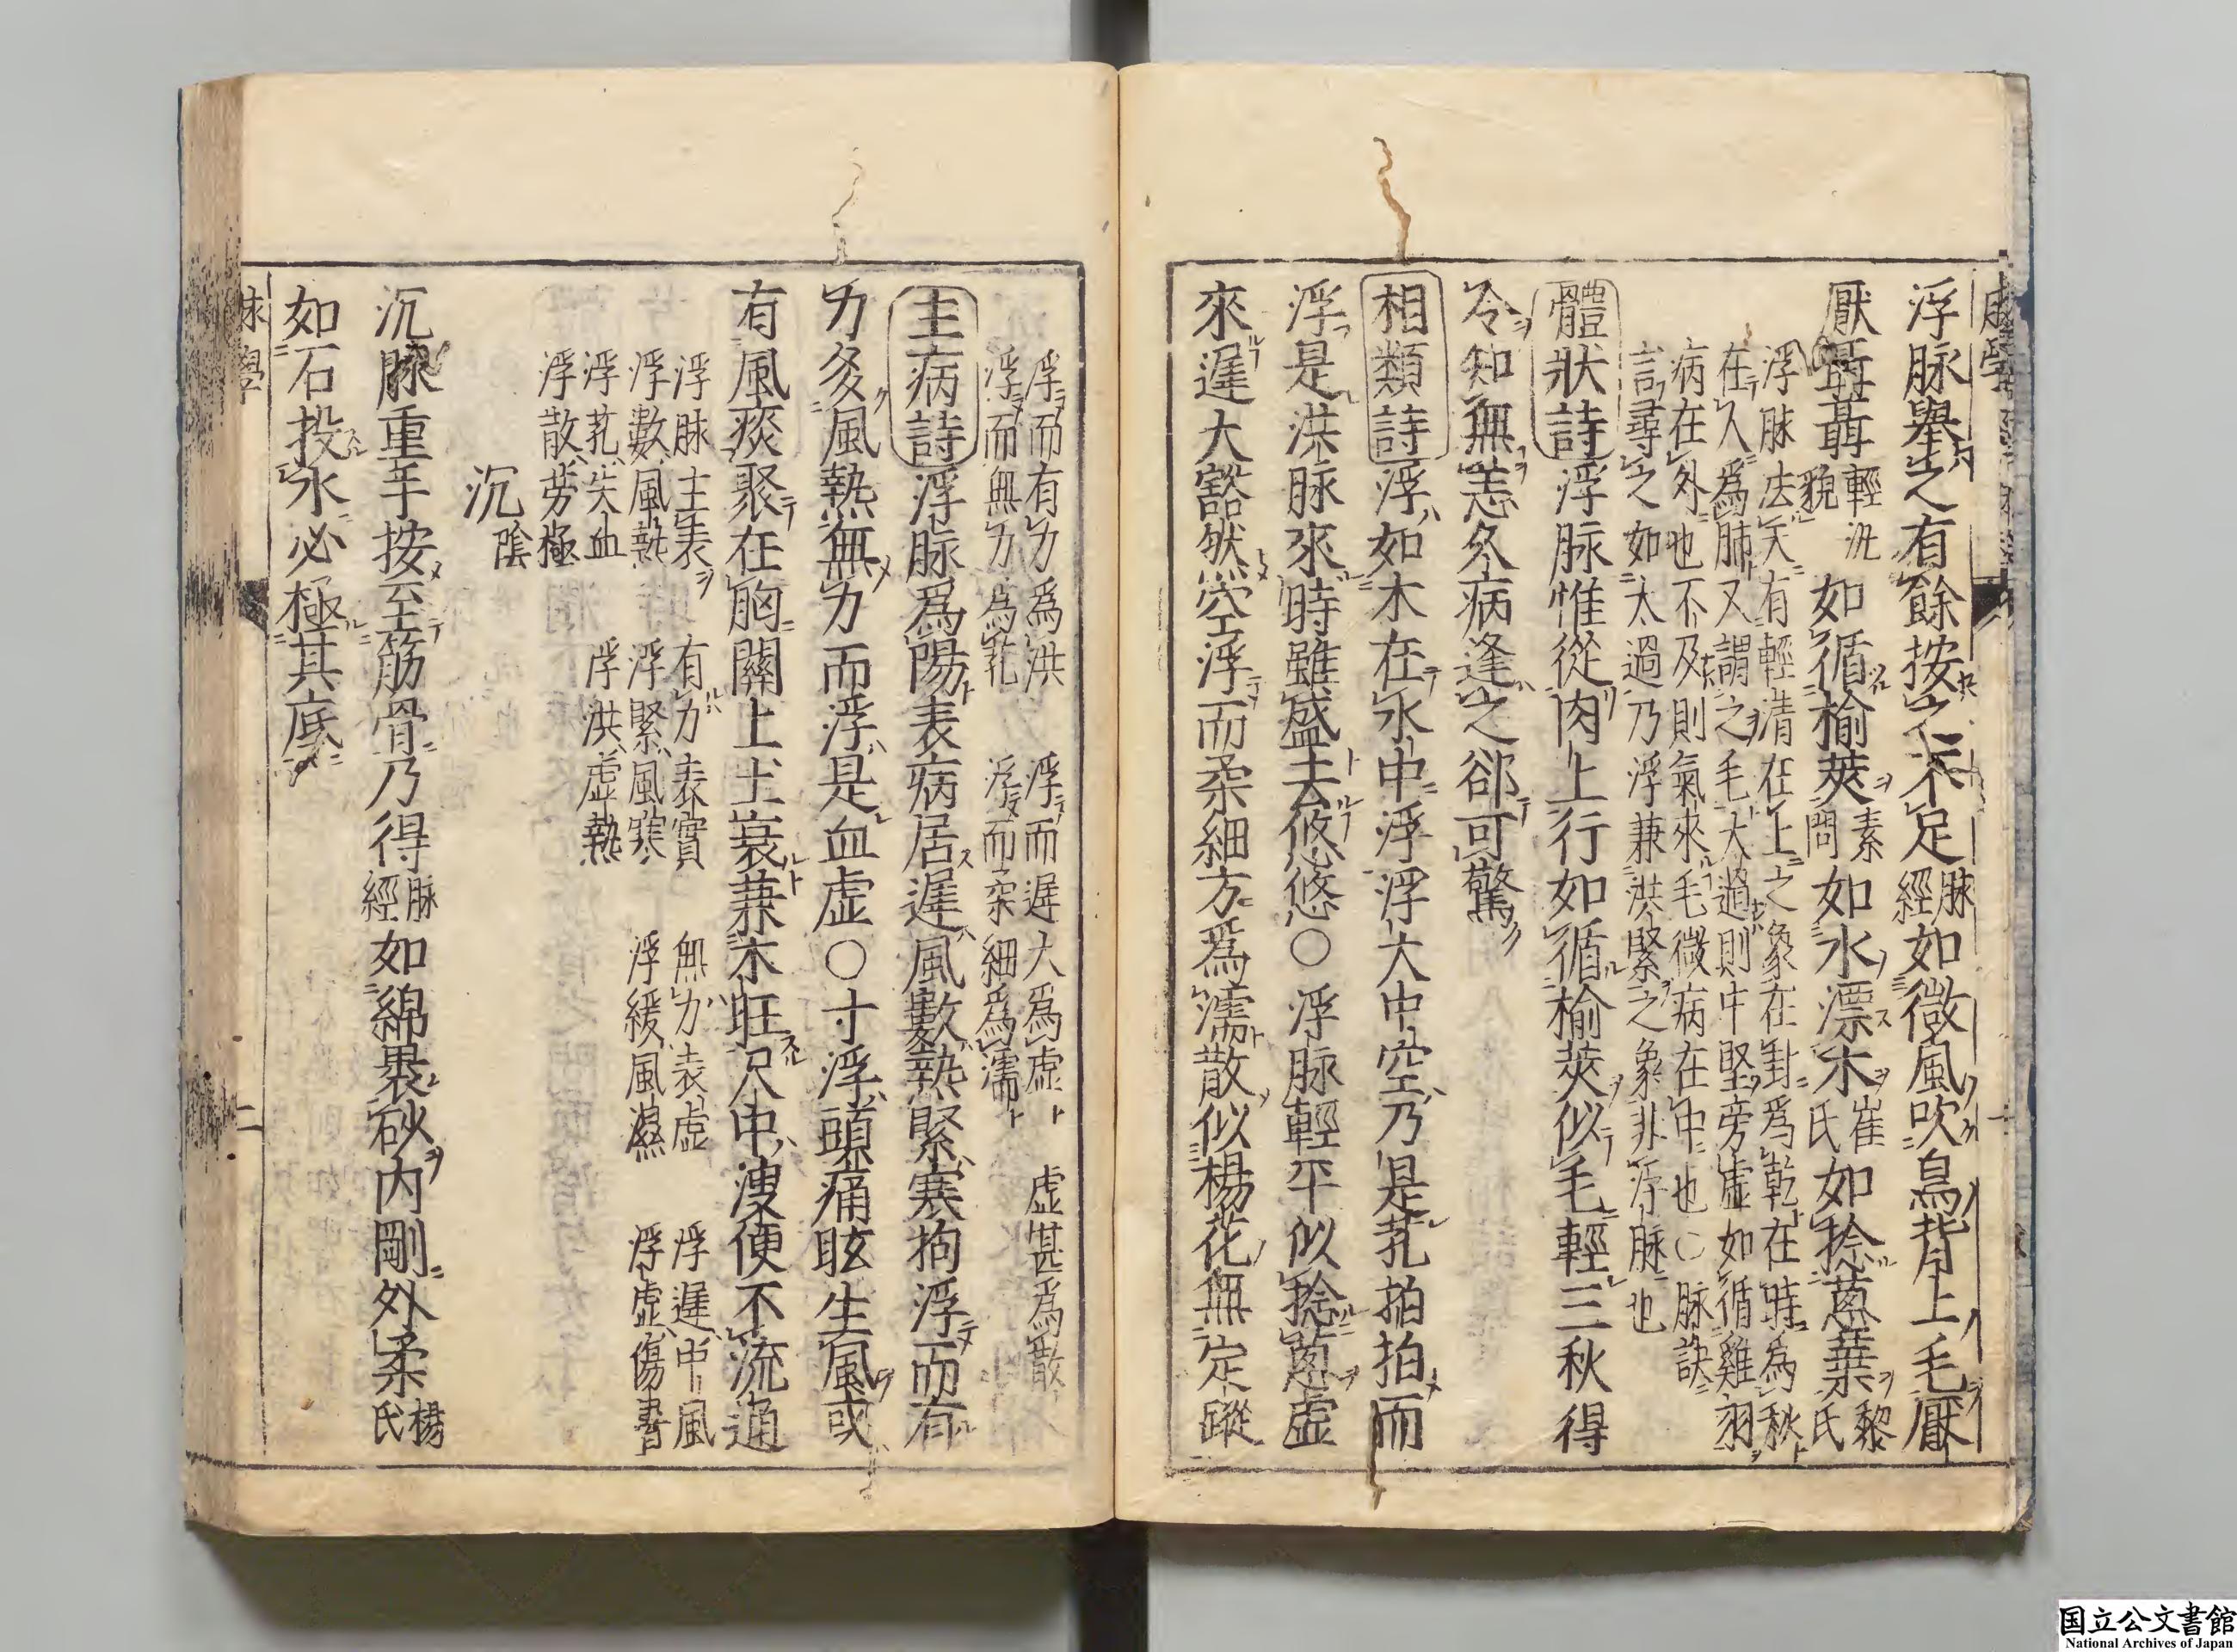 浮脉舉之有餘按之不足脉經如微風吹鳥背上毛厭
厭聶聶輕汎貌如循榆莢素問如水漂木崔氏如捻葱葉黎氏
浮脉法天有輕清在上之象在卦爲乾在時爲秋
在人爲肺又謂之毛大過則中堅旁虛如循雞羽
病在外也不及則氣來毛微病在中也○脉訣
言尋之如太過乃浮兼洪緊之象非浮脉也
體狀詩浮脉惟從肉上行如循榆莢似毛輕三秋得
令知無恙久病逢之卻可驚
相類詩浮如木在水中浮浮大中空乃是芤拍拍而
浮是洪脉來時雖盛去悠悠○浮脉輕平似捻葱虛
來遲大豁然空浮而柔細方爲濡散似楊花無定蹤
浮而有力爲洪 浮而遲大爲虛 虛甚爲散
浮而無力爲芤 浮而柔細爲濡
主病詩浮脉爲陽表病居遲風數熱緊寒拘浮而有
力多風熱無力而浮是血虛○寸浮頭痛眩生風或
有風痰聚在胸關上土衰兼木旺尺中溲便不流通
浮脉主表 有力表實 無力表虛 浮遲中風
浮數風熱 浮緊風寒 浮緩風濕 浮虛傷暑
浮芤失血 浮洪虛熱
浮散勞極
沉陰
沉脉重手按至筋骨乃得脉經如綿裹砂內剛外柔楊氏
如石投水必極其底
脉學
二
国立公文書館
National Archives of Japan